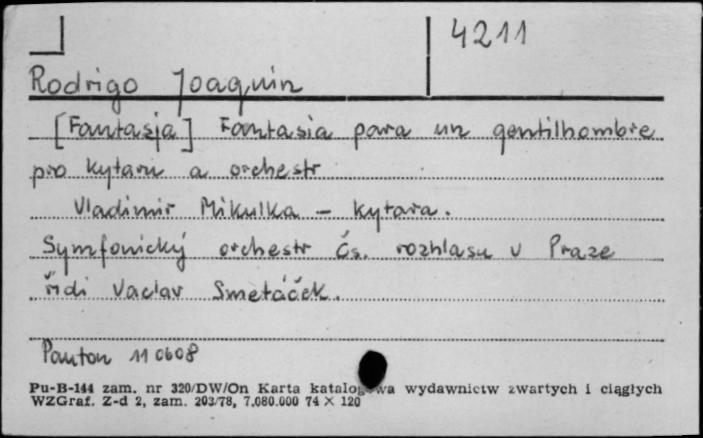 4211
Rodrigo Joaquin
[Fantasja] Fantasia para un gentilhombre
pro kytaru a orchestr
Vladimir Mikulka – kytara.
Symfonický orchestr Čs. rozhlasu v Praze
řídi Vaclav Smetáček.
Panton 11 0608
Pu-B-144 zam. nr 320/DW/On Karta katalogowa wydawnictw zwartych i ciągłych
WZGraf. Z-d 2, zam. 203/78, 7.080.000 74 × 120